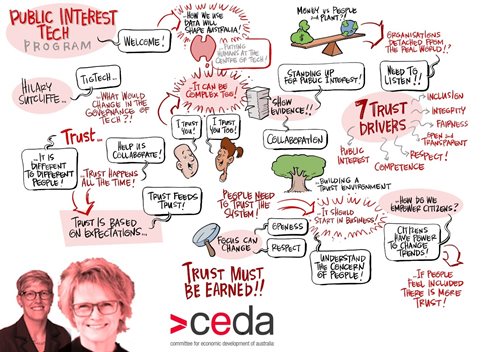 PUBLIC INTEREST
TECH
PROGRAM
WELCOME!
...HOW WE USE
DATA WILL
SHAPE AUSTRALIA!
...PUTTING
HUMANS AT THE
CENTRE OF TECH!
MONEY vs PEOPLE
and PLANET?!
ORGANISATIONS
DETACHED FROM
THE REAL WORLD?!..
HILARY
SUTCLIFFE...
TIGTECH...
...WHAT WOULD
CHANGE IN THE
GOVERNANCE OF
TECH?!
...IT CAN BE
COMPLEX TOO!
STANDING UP
FOR PUBLIC INTEREST!
NEED TO
LISTEN!!
SHOW
EVIDENCE!!
COLLABORATION
7 TRUST
DRIVERS
INCLUSION
INTEGRITY
FAIRNESS
OPEN and
TRANSPARENT
RESPECT!
COMPETENCE
PUBLIC
INTEREST
TRUST...
HELP US
COLLABORATE!
I TRUST
YOU!
I TRUST
YOU TOO!
...IT IS
DIFFERENT
TO DIFFERENT
PEOPLE!
...TRUST HAPPENS
ALL THE TIME!
TRUST FEEDS
TRUST!
TRUST IS BASED
ON EXPECTATIONS...
...BUILDING A
TRUST ENVIRONMENT
PEOPLE NEED
TO TRUST THE
SYSTEM!
...IT SHOULD
START IN BUSINESS!
...HOW DO WE
EMPOWER CITIZENS?
OPENESS
RESPECT
FOCUS CAN
CHANGE
UNDERSTAND
THE CONCERN
OF PEOPLE!
CITIZENS
HAVE POWER
TO CHANGE
TRENDS!
...IF PEOPLE
FEEL INCLUDED
THERE IS MORE
TRUST!
TRUST MUST
BE EARNED!!
>ceda
committee for economic development of australia